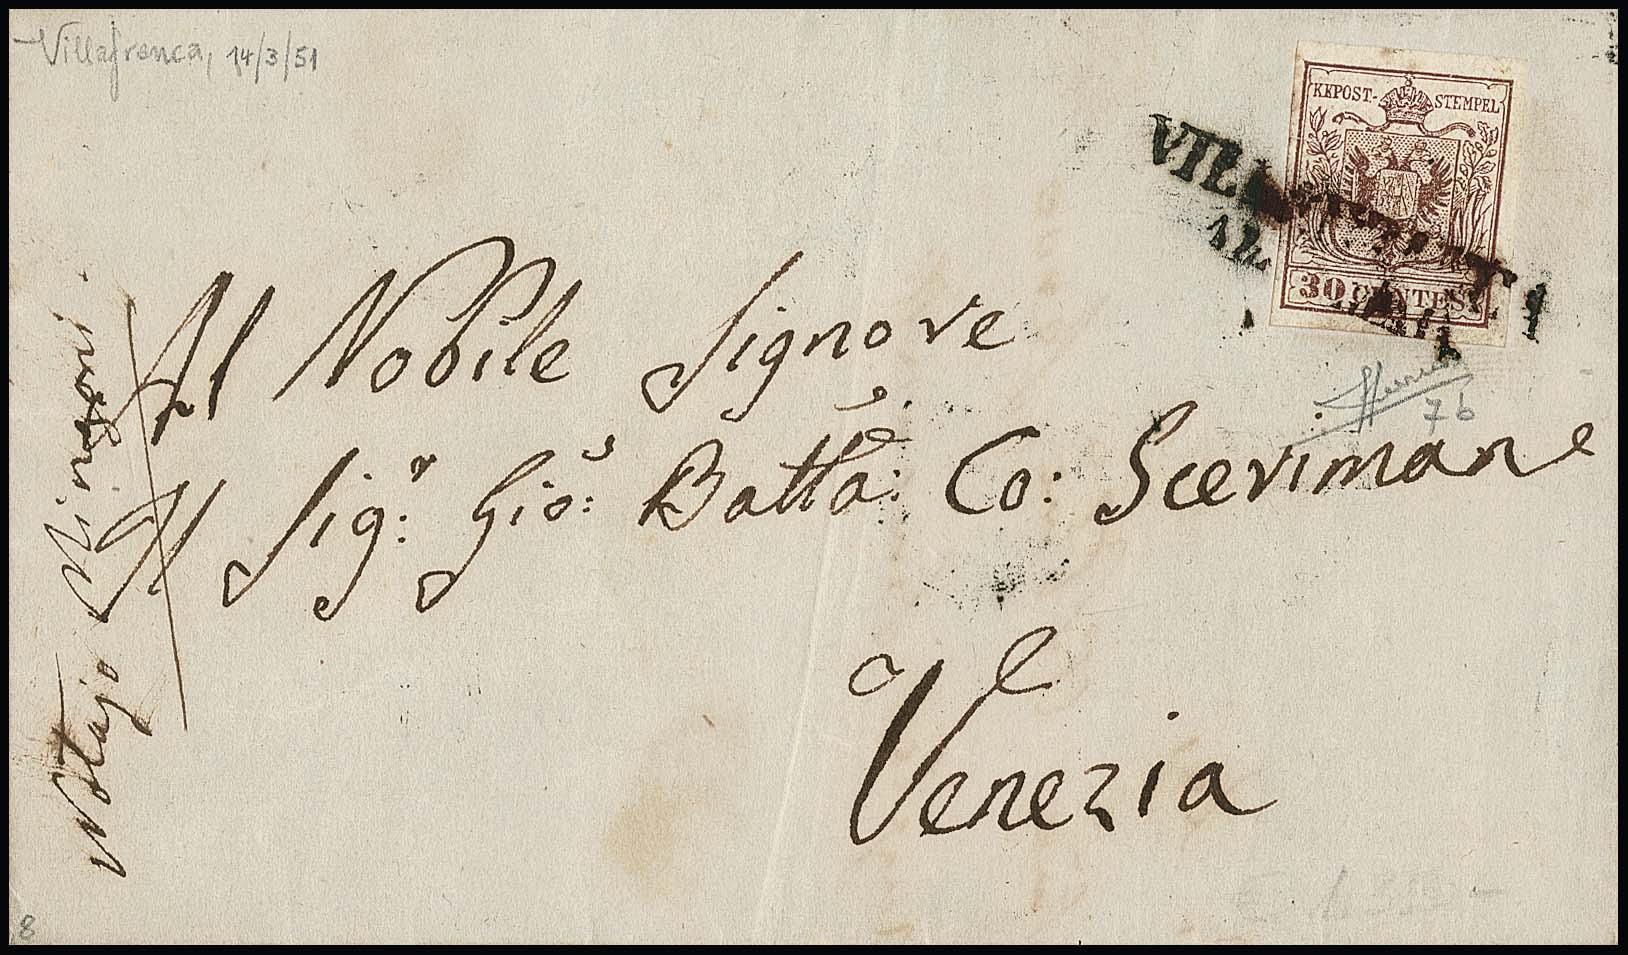 Villafranca, 14/3/51
KKPOST-STEMPEL
30 CENTES.
14
76
Al Nobile Signore
Il Sig.r Gio: Batta: Co: Scerimane
Venezia
Notajo
8